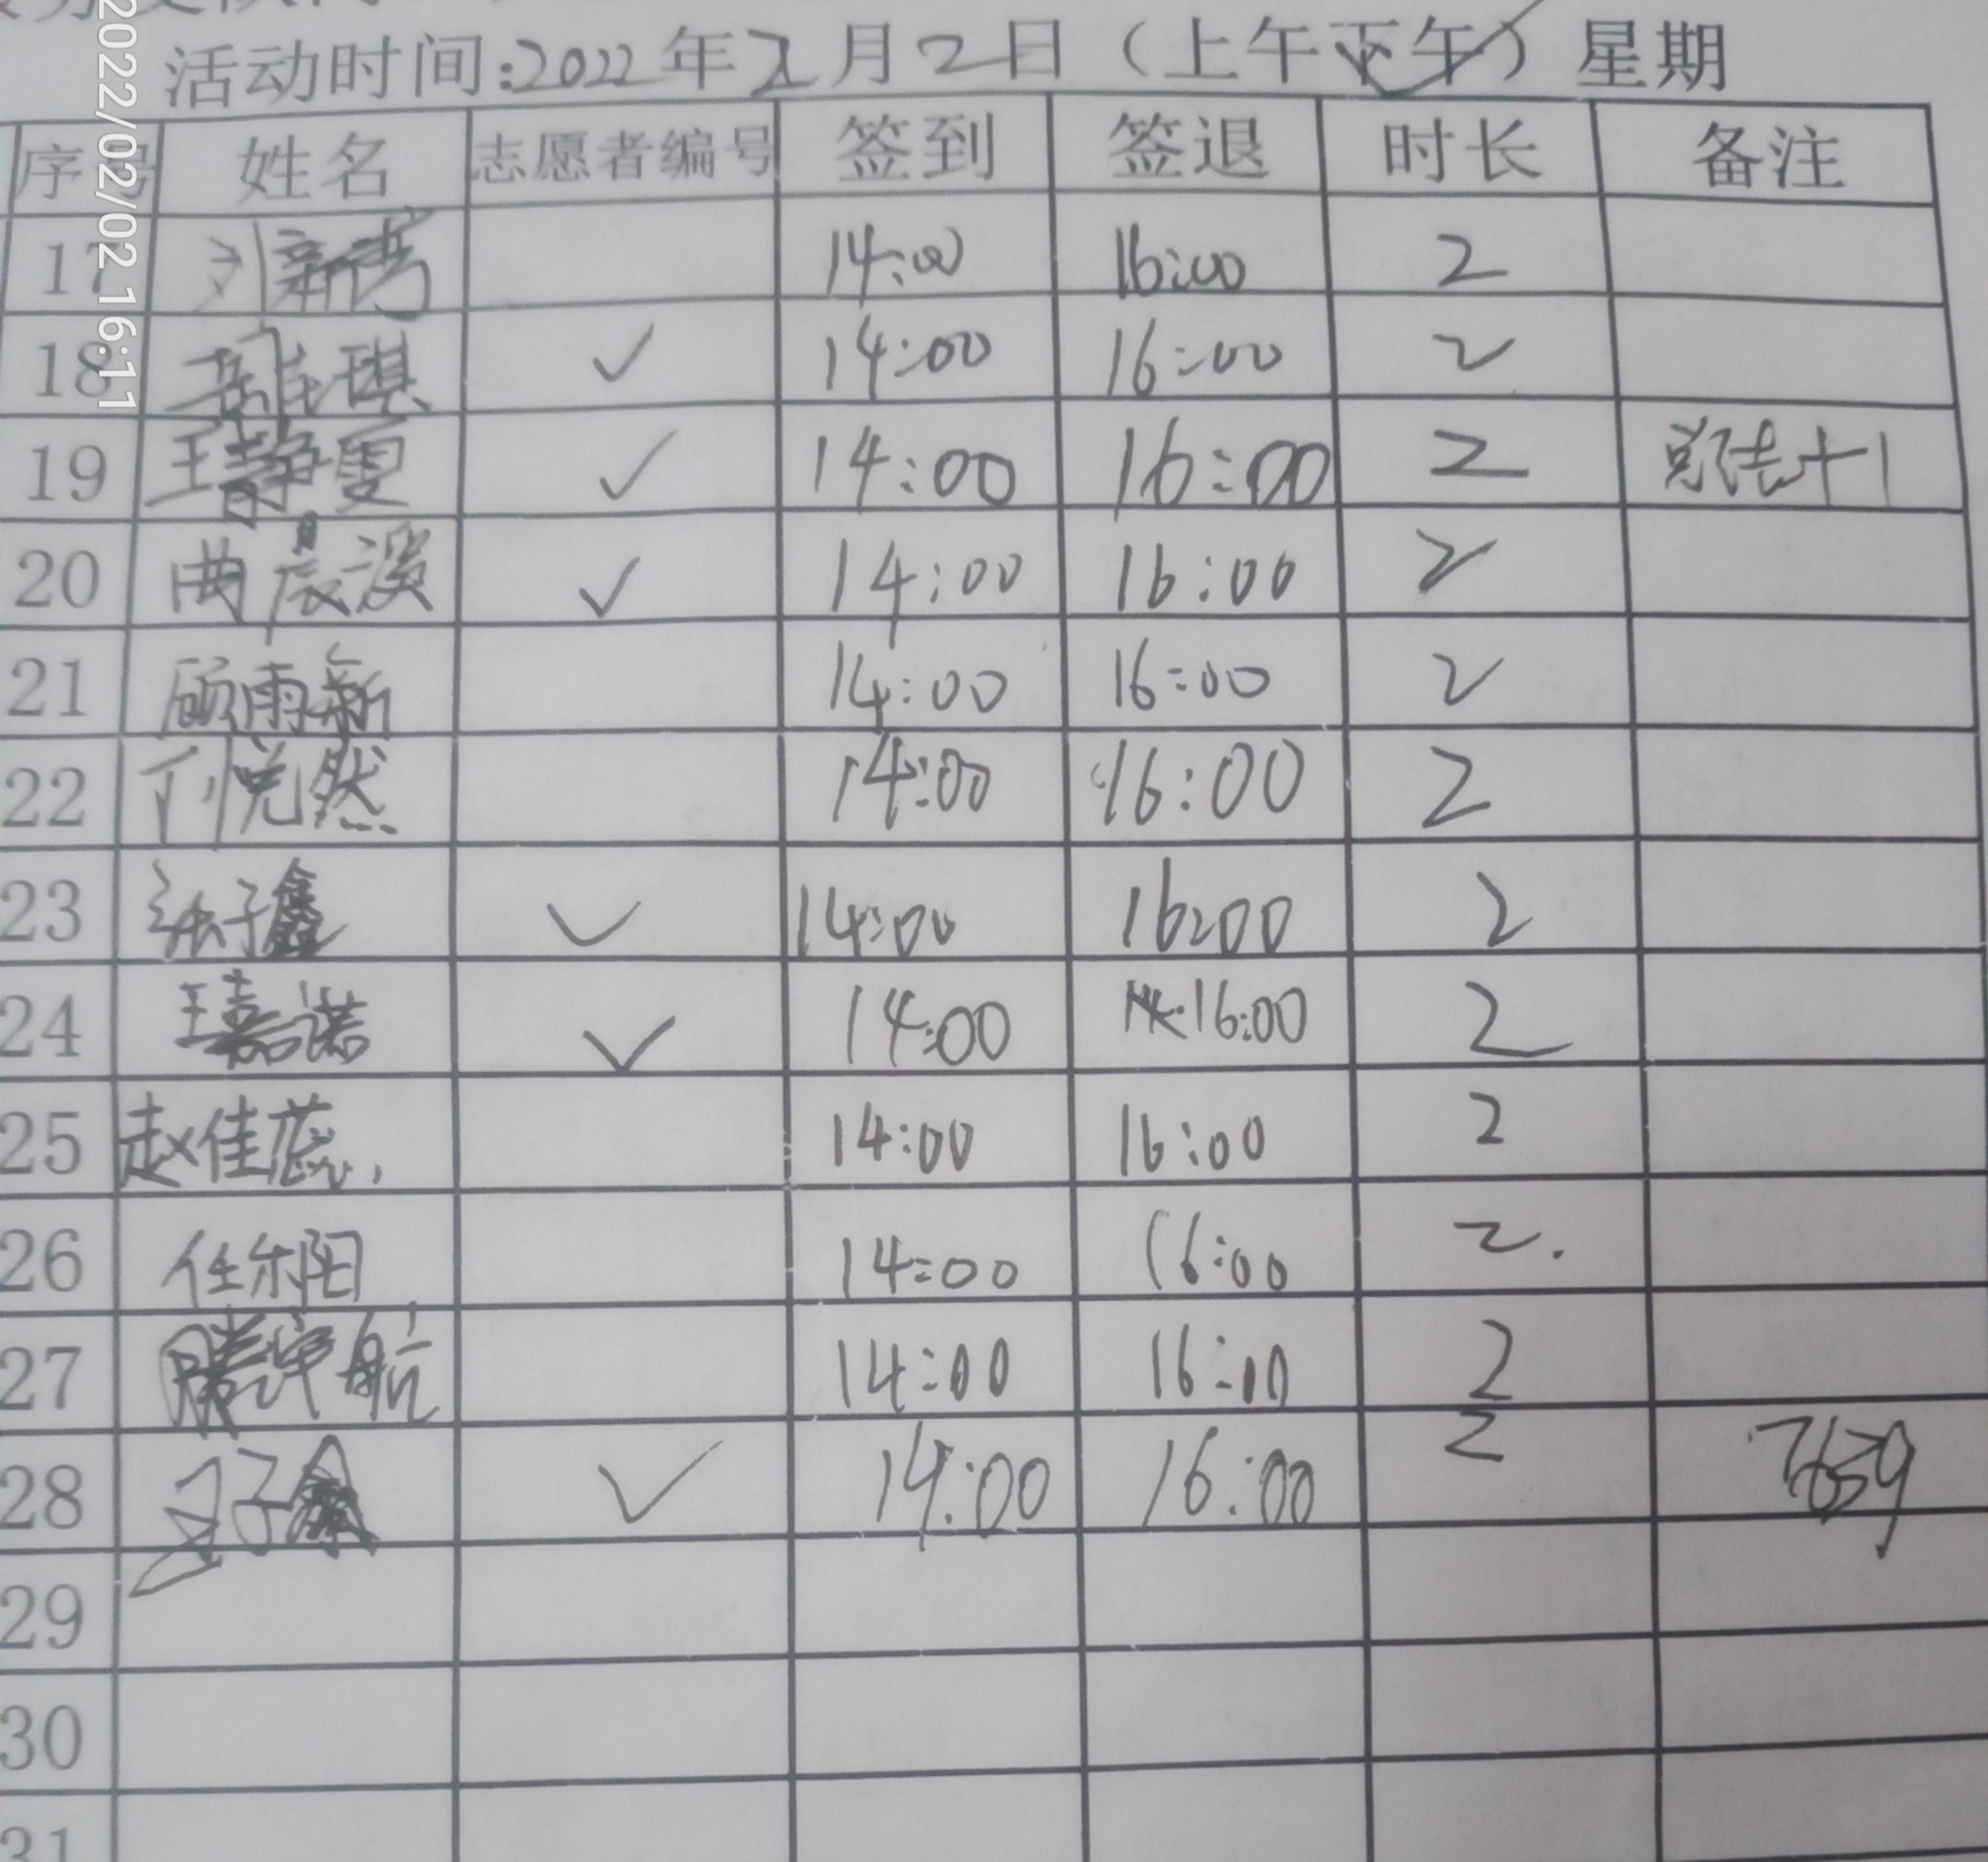 活动时间:2022年2月2日（上午下午）星期
序号 姓名 志愿者编号 签到 签退 时长 备注
17 刘新 14:00 16:00 2
18 琪 ✓ 14:00 16:00 2
19 王静雯 ✓ 14:00 16:00 2 总结+1
20 曲晨溪 ✓ 14:00 16:00 2
21 顾雨新 14:00 16:00 2
22 刘悦然 14:00 16:00 2
23 张子鑫 ✓ 14:00 16:00 2
24 王嘉诺 ✓ 14:00 16:00 2
25 赵佳蕊 14:00 16:00 2
26 任尔阳 14:00 16:00 2
27 滕宇航 14:00 16:00 2
28 孟子鑫 ✓ 14:00 16:00 2
29
30
31
2022/02/02 16:11